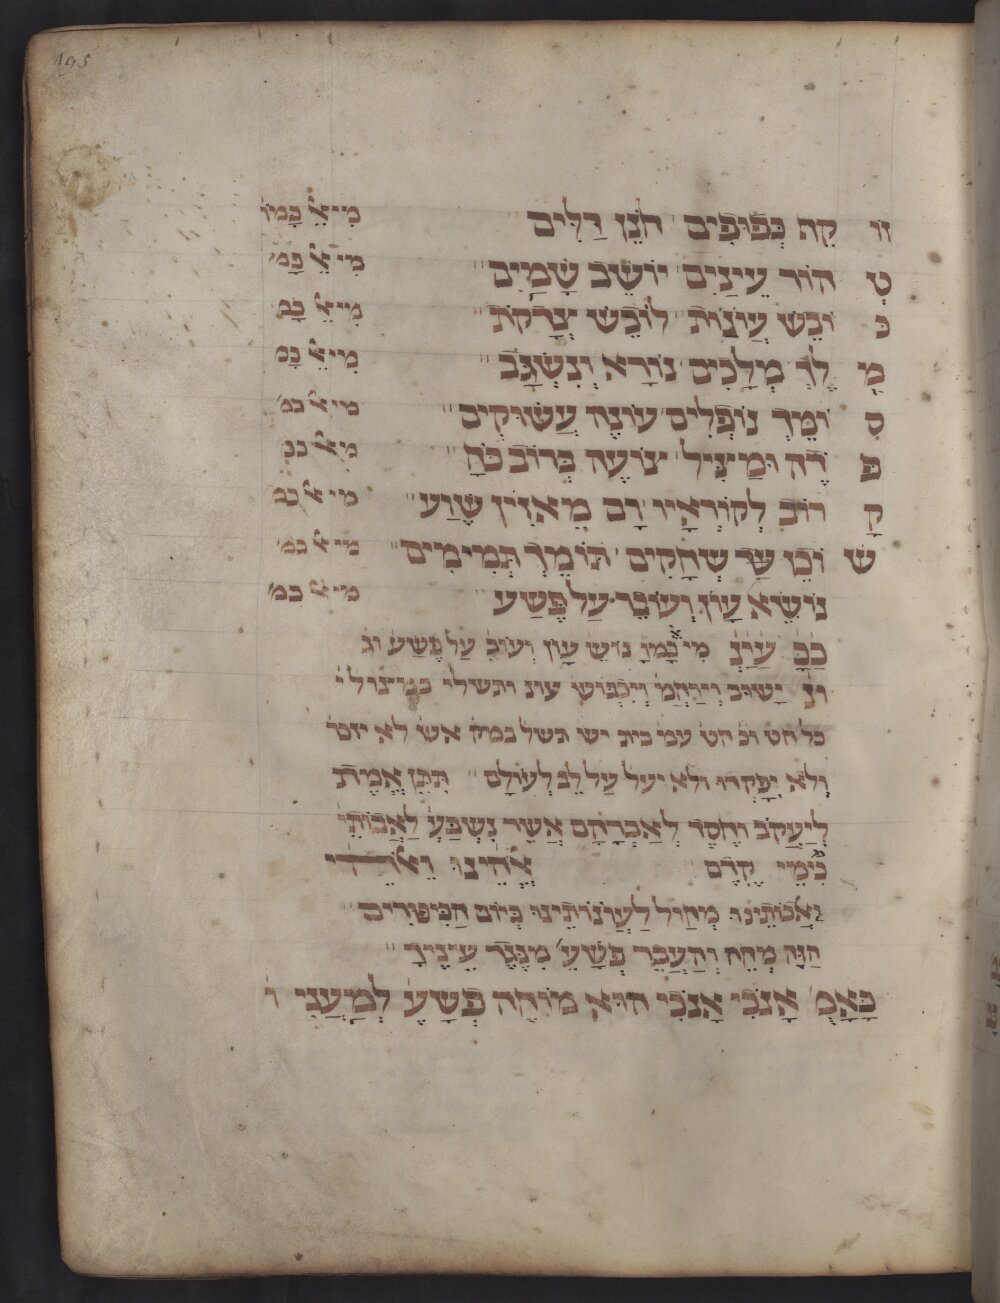 195
זו קף כְּפוּפִים חוֹנֵן דַלִּים מי אל כָּמוֹ
ט הור עֵינַיִם יוֹשֵׁב שָׁמַיִם מי אל כָּמ׳
כ ובֵש עֲוֹנוֹת לוֹבֵש צְדָקוֹת מי אל כָּמ
מ לֶךְ מְלָכִים נוֹרָא וְנִשְׂגָּב מי אל כָּמ
ס וֹמֵךְ נוֹפְלִים עוֹנֶה עֲשׁוּקִים מי אל כמ׳
פ דֶה וּמַצִיל צוֹעֶה בְּרוֹב כֹּחַ מי אל כמ
ק רוֹב לְקוֹרְאָיו רָם מַאֲזִין שֶׁוַע מי אל כמ
ש וֹכֵן עַד שְׁחָקִים תּוֹמֵךְ תְּמִימִים מי אל כמ׳
נוֹשֵׂא עָוֹן וְעוֹבֵר עַל פֶּשַׁע מי אל כמ׳
כַּכָּ׳ עַיְנֵ׳ מִי אל כָּמוֹ נושׂ׳ עָוֹן וְעוֹבֵ׳ עַל פֶּשַׁע וג
ונ׳ יָשׁוּב וִירַחֲמֵ׳ וְיִכְבּוֹשׁ עונ׳ ותשלי׳
כל חט׳ וכ׳ חט׳ עמ׳ בית יש׳ תשל׳ במק׳ אש׳ לא יזכר׳
וְלֹא יִפָּקְדוּ וְלֹא יַעֲל׳ עַל לֵב לְעוֹלָם תִּתֵּן אֱמֶת
לְיַעֲקֹב וְחֶסֶד לְאַבְרָהָם אֲשֶׁר נִשְׁבַּעְ׳ לַאֲבוֹתֵי׳
מִימֵי קֶדֶם אֱלֹהֵינוּ וֵאלֹהֵי
אֲבוֹתֵינוּ מְחוֹל לַעֲוֹנוֹתֵינוּ בְּיוֹם הַכִּיפּוּרִים
הַזֶּה מְחֵה וְהַעֲבֵר פְּשָׁעֵ׳ מִנֶּגֶד עֵינֶיךָ
כָּאָמ׳ אָנֹכִי אָנֹכִי הוּא מוֹחֶה פְשָׁעֶ׳ לְמַעֲנִי ו